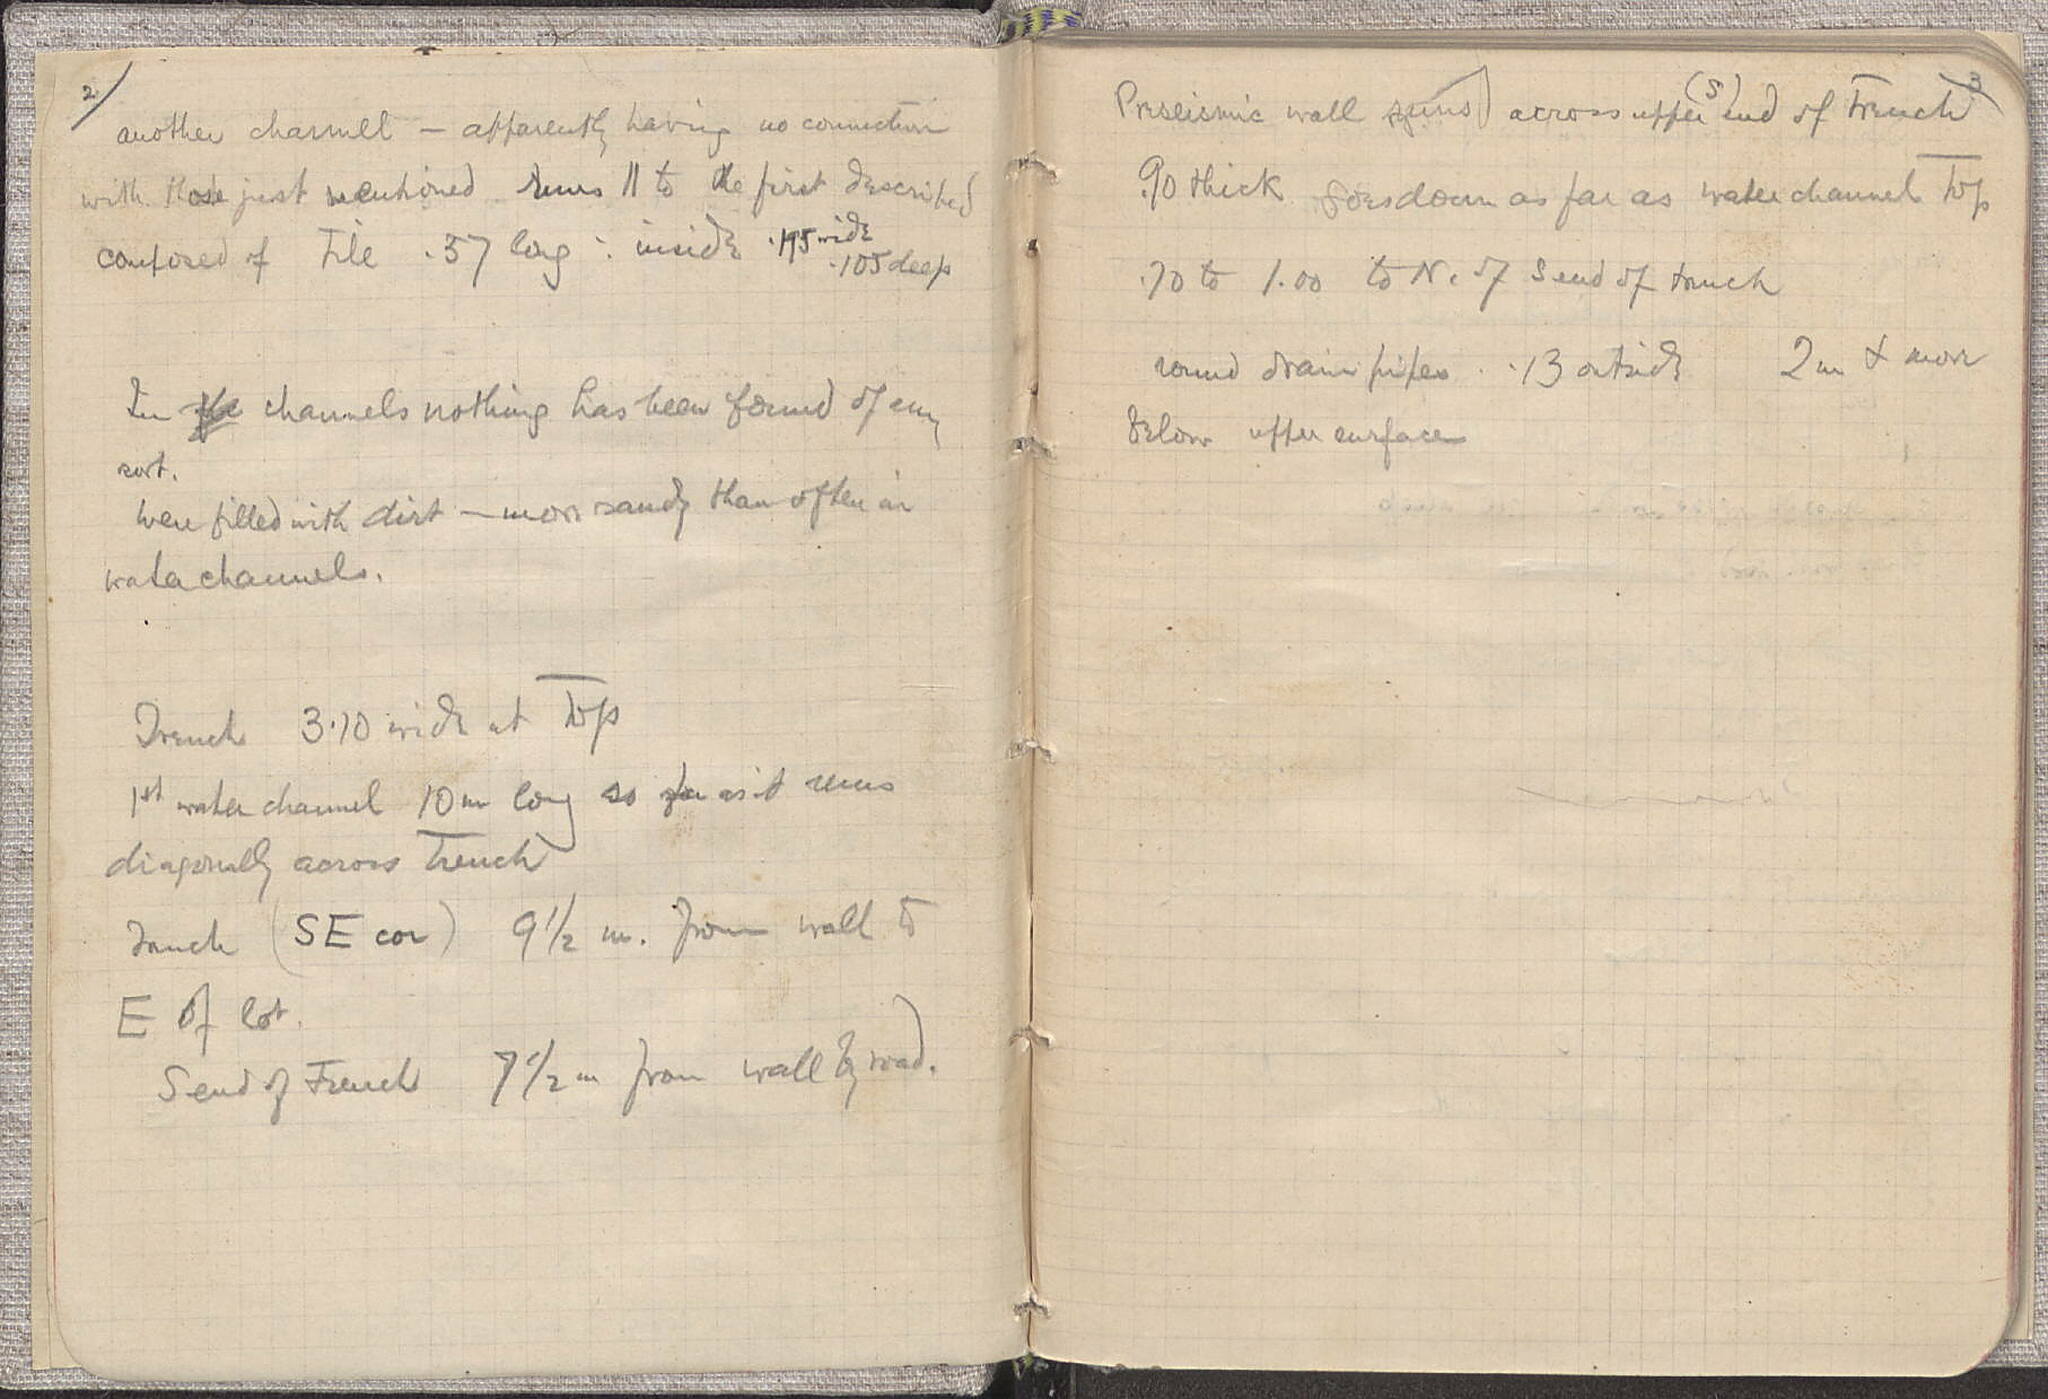 2
another channel – apparently having no connection
with those just mentioned runs || to the first described
composed of Tile .37 long : inside .195 wide
.105 deep
In the channels nothing has been found of any
sort.
Were filled with dirt – more sandy than often in
water channels.
Trench 3.10 wide at Top
1st water channel 10 m long so far as it runs
diagonally across Trench
Trench (SE cor) 9 1/2 m. from wall to
E of lot.
S end of Trench 7 1/2 m from wall by road.
3
Preseismic wall runs across upper (S) end of Trench
.90 thick goes down as far as water channel Top
.70 to 1.00 to N. of S end of trench
round drain pipes . .13 outside 2 m & more
below upper surface